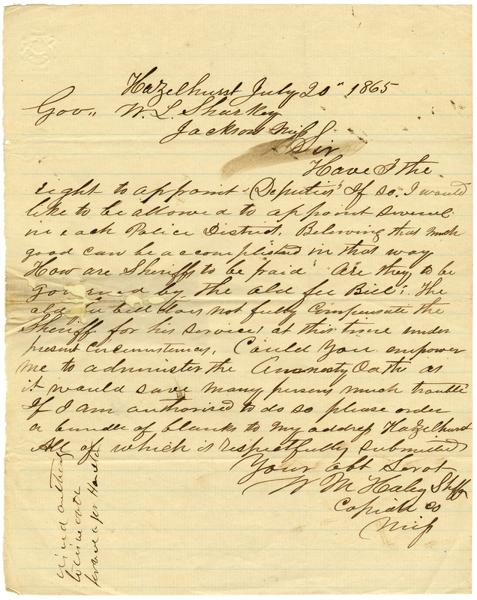 Hazelhurst July 20" 1865
Gov,, W. L. Sharkey
Jackson Miss
Sir
Have I the
right to appoint "Deputies" If so. I would
like to be allowed to appoint several
in each Police District. Believing that much
good can be accomplished in that way
How are Sheriffs to be paid Are they to be
governed by the old fee Bill. The
old fee bill does not fully compensate the
Sheriff for his services at this time under
present circumstances. Could you empower
me to administer the Amnesty Oath as
it would save many persons much trouble
If I am authorised to do so please order
a bundle of blanks to my address Hazelhurst
All of which is respectfully submitted
Your obt Servt
W M Haley Shff
Copiah co
Miss